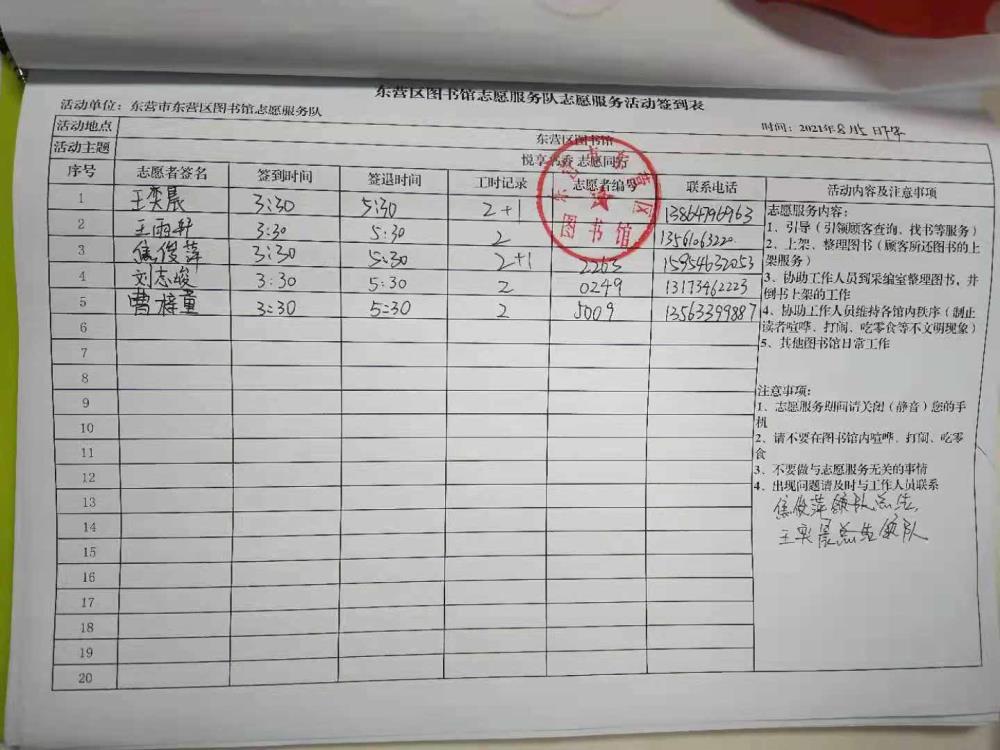 东营区图书馆志愿服务队志愿服务活动签到表
活动单位：东营市东营区图书馆志愿服务队
时间：2021年8月15日下午
活动地点 东营区图书馆
活动主题 悦享书香 志愿同行
序号 志愿者签名 签到时间 签退时间 工时记录 志愿者编号 联系电话 活动内容及注意事项
1 王奕晨 3:30 5:30 2+1 13864796963
2 王雨轩 3:30 5:30 2 1356106322
3 焦俊萍 3:30 5:30 2+1 2263 15954632053
4 刘志峻 3:30 5:30 2 0249 13173462223
5 曹梓童 3:30 5:30 2 5009 13563399887
6
7
8
9
10
11
12
13
14
15
16
17
18
19
20
志愿服务内容：
1、引导（引领顾客查询、找书等服务）
2、上架、整理图书（顾客所还图书的上
架服务）
3、协助工作人员到采编室整理图书，并
倒书上架的工作
4、协助工作人员维持各馆内秩序（制止
读者喧哗、打闹、吃零食等不文明现象）
5、其他图书馆日常工作
注意事项：
1、志愿服务期间请关闭（静音）您的手
机
2、请不要在图书馆内喧哗、打闹、吃零
食
3、不要做与志愿服务无关的事情
4、出现问题请及时与工作人员联系
焦俊萍领队总结，
王奕晨总结领队
东营市东营区
图书馆